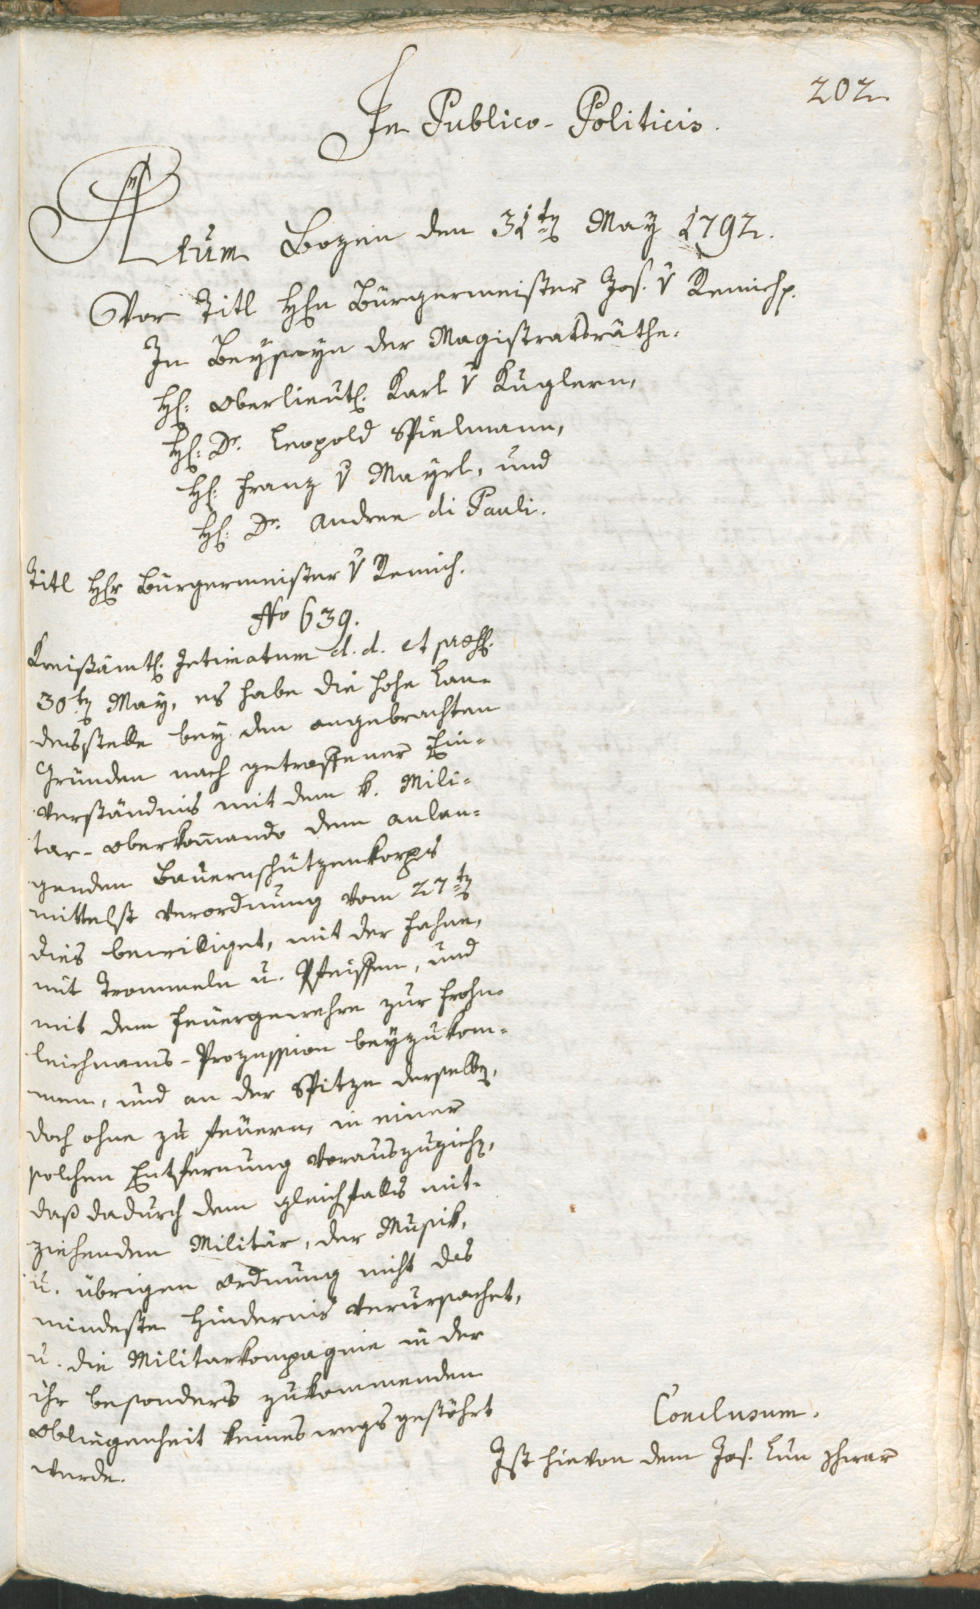 202
In Publico-Politicis.
Actum Bozen den 31ten May 1792.
Vor Titl Hrn Bürgermeister Jos. v Remich.
In Beyseyn der Magistratsräthe.
H: Oberlieut: Karl v Kuglern,
H: Dr. Leopold Spielmann,
H: Franz v Mayrl, und
H: Dr. Andree di Pauli.
Titl Hr Bürgermeister v Remich.
No 639.
Kreißämtl: Intimatum d. d. et praes:
30ten May, es habe die hohe Lan-
desstelle bey den angebrachten
Gründen nach getroffener Ein-
verständnis mit dem k. Mili-
tar-Oberkommando dem anlan-
genden Bauernschützenkorps
mittelst Verordnung vom 27ten
dies bewilliget, mit der Fahne,
mit Trommeln u. Pfeiffen, und
mit dem Feuergewehre zur Frohn-
leichnams-Prozession beyzukom-
men, und an der Spitze derselben,
doch ohne zu feuern, in einer
solchen Entfernung vorauszuziehen,
daß dadurch dem gleichfalls mit-
ziehenden Militär, der Musik,
u. übrigen Ordnung nicht das
mindeste Hindernis verursachet,
u. die Militarkompagnie in der
ihr besonders zukommenden
Obliegenheit keineswegs gestöhrt
werde.
Conclusum.
Ist hievon dem Jos. Lun